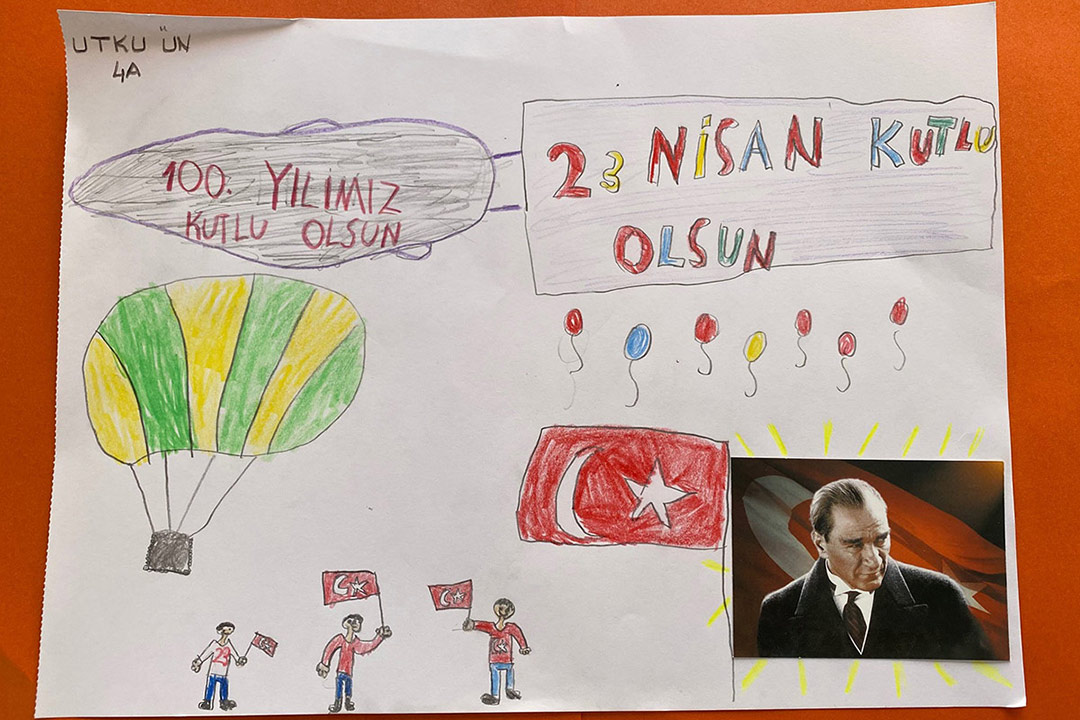 UTKU ÜN
4A
100. YILIMIZ
KUTLU OLSUN
23 NİSAN KUTLU
OLSUN
23